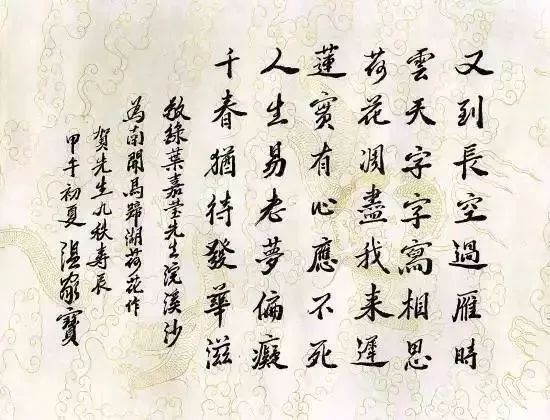 又到長空過雁時
雲天字字寫相思
荷花凋盡我来遲
蓮實有心應不死
人生易老夢偏癡
千春猶待發華滋
敬録葉嘉瑩先生浣溪沙
為南開馬蹄湖荷花作
賀先生九秩壽辰
甲午初夏 温家寶